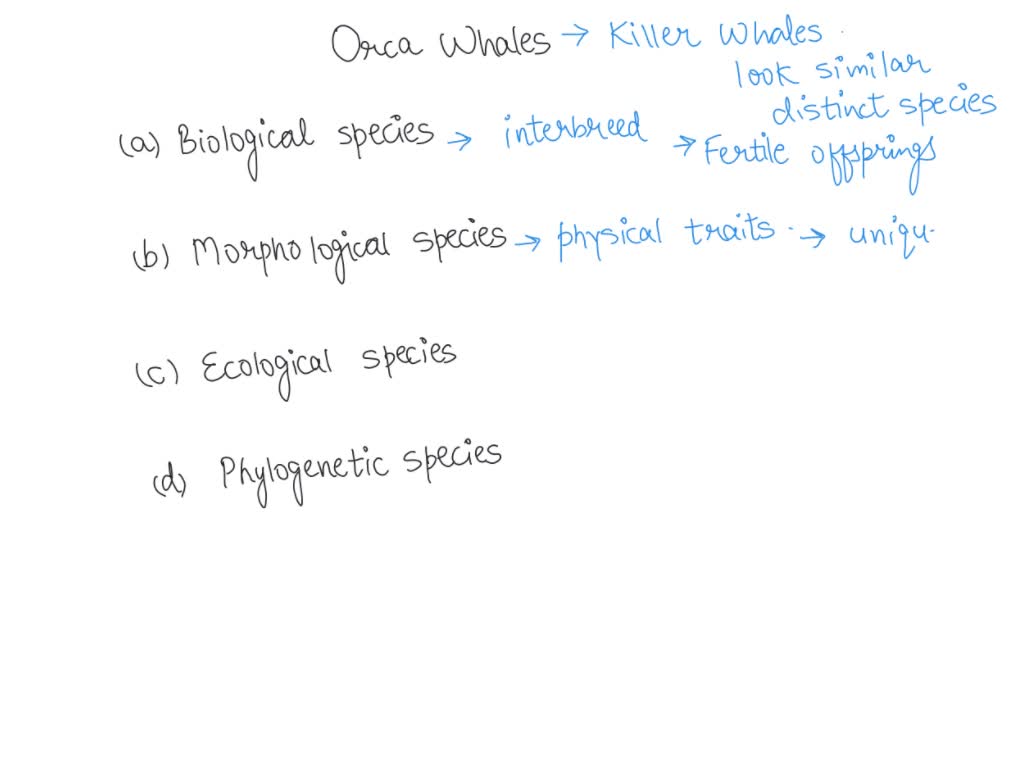 Orca Whales → Killer Whales
look similar
distinct species
(a) Biological species → interbreed → Fertile offsprings
(b) Morphological species → physical traits → uniqu
(c) Ecological species
(d) Phylogenetic species